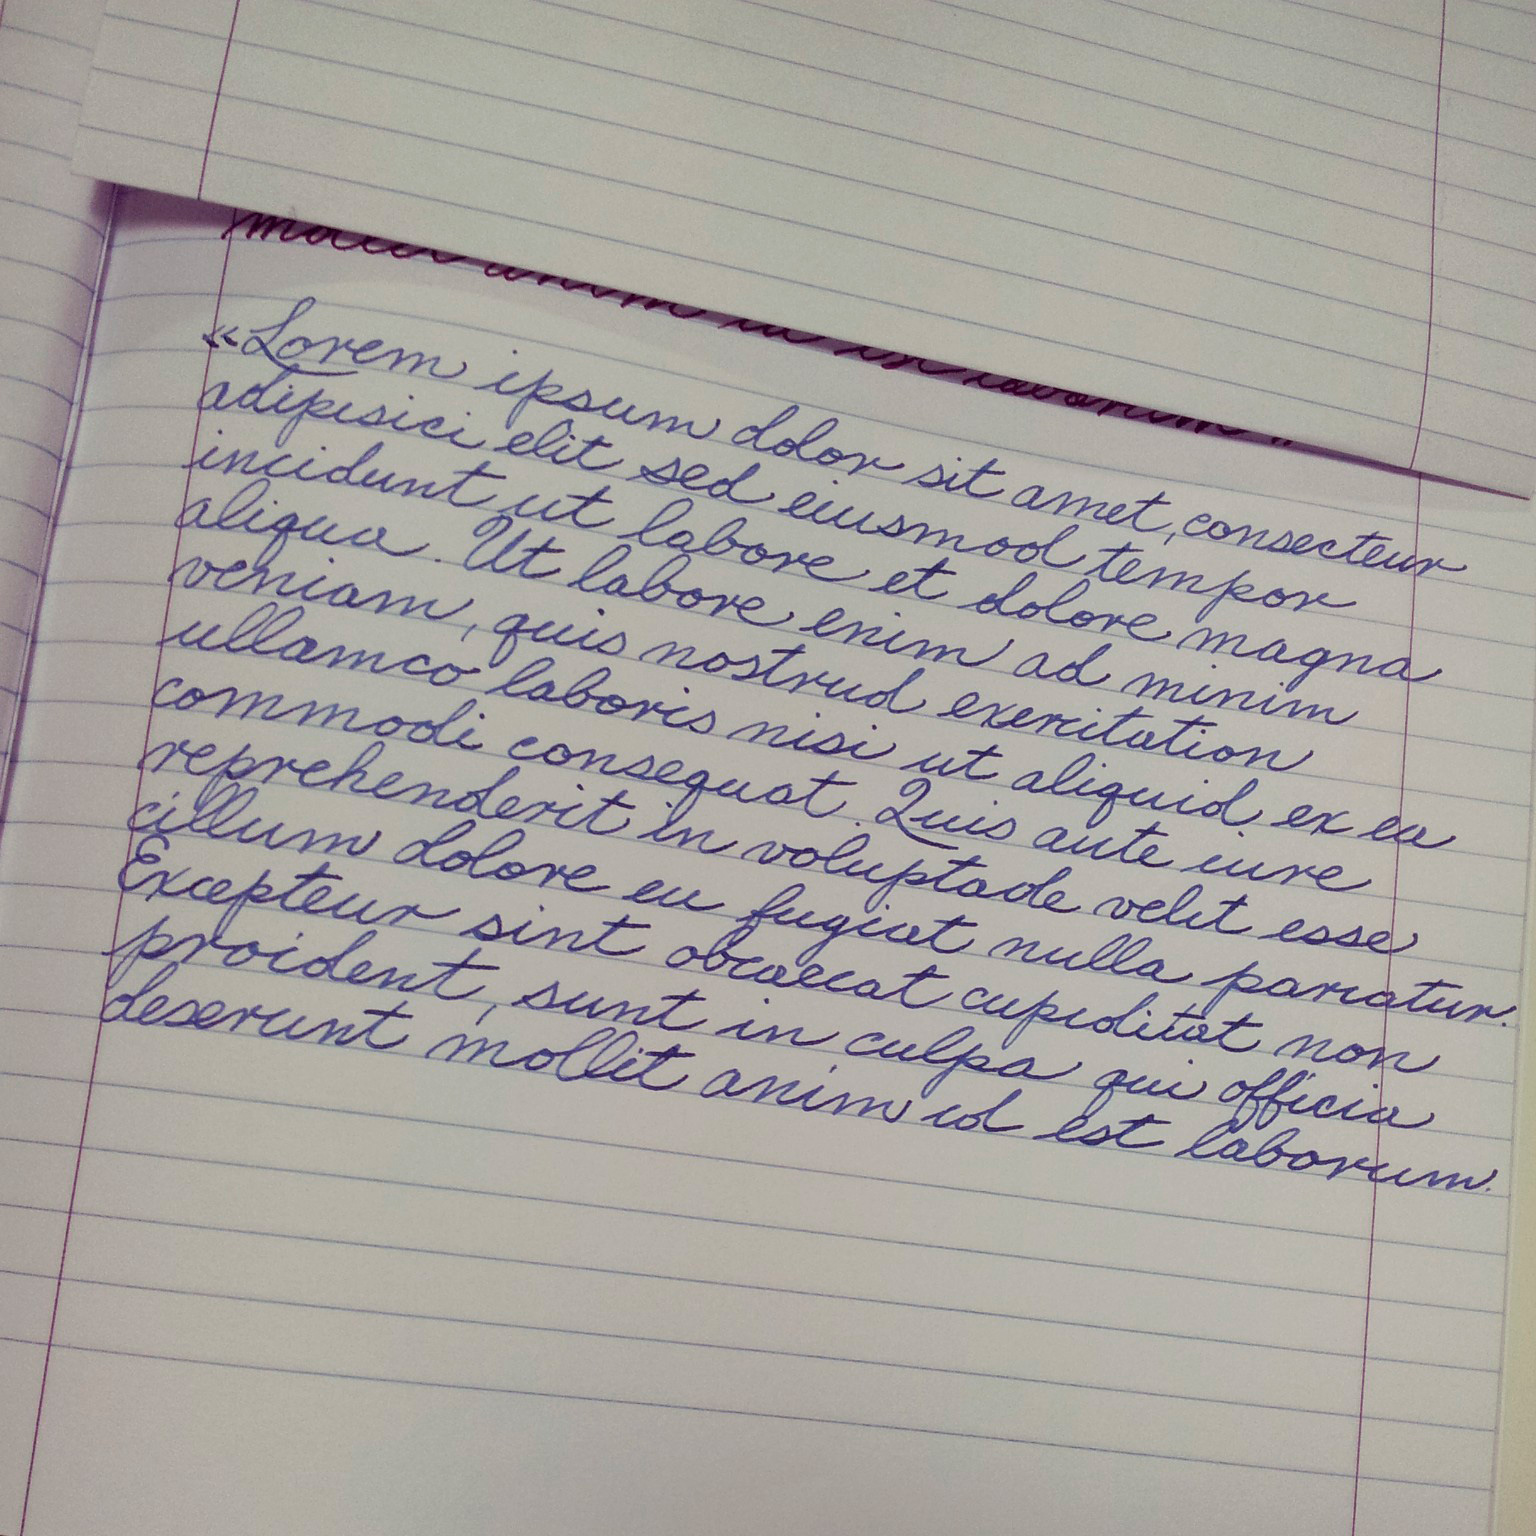 mollit anim id est laborum."
«Lorem ipsum dolor sit amet, consecteur
adipisici elit sed eiusmod tempor
incidunt ut labore et dolore magna
aliqua. Ut labore enim ad minim
veniam, quis nostrud exercitation
ullamco laboris nisi ut aliquid ex ea
commodi consequat. Quis aute iure
reprehenderit in voluptade velit esse
cillum dolore eu fugiat nulla pariatur.
Excepteur sint obcaecat cupiditat non
proident, sunt in culpa qui officia
deserunt mollit anim id est laborum.